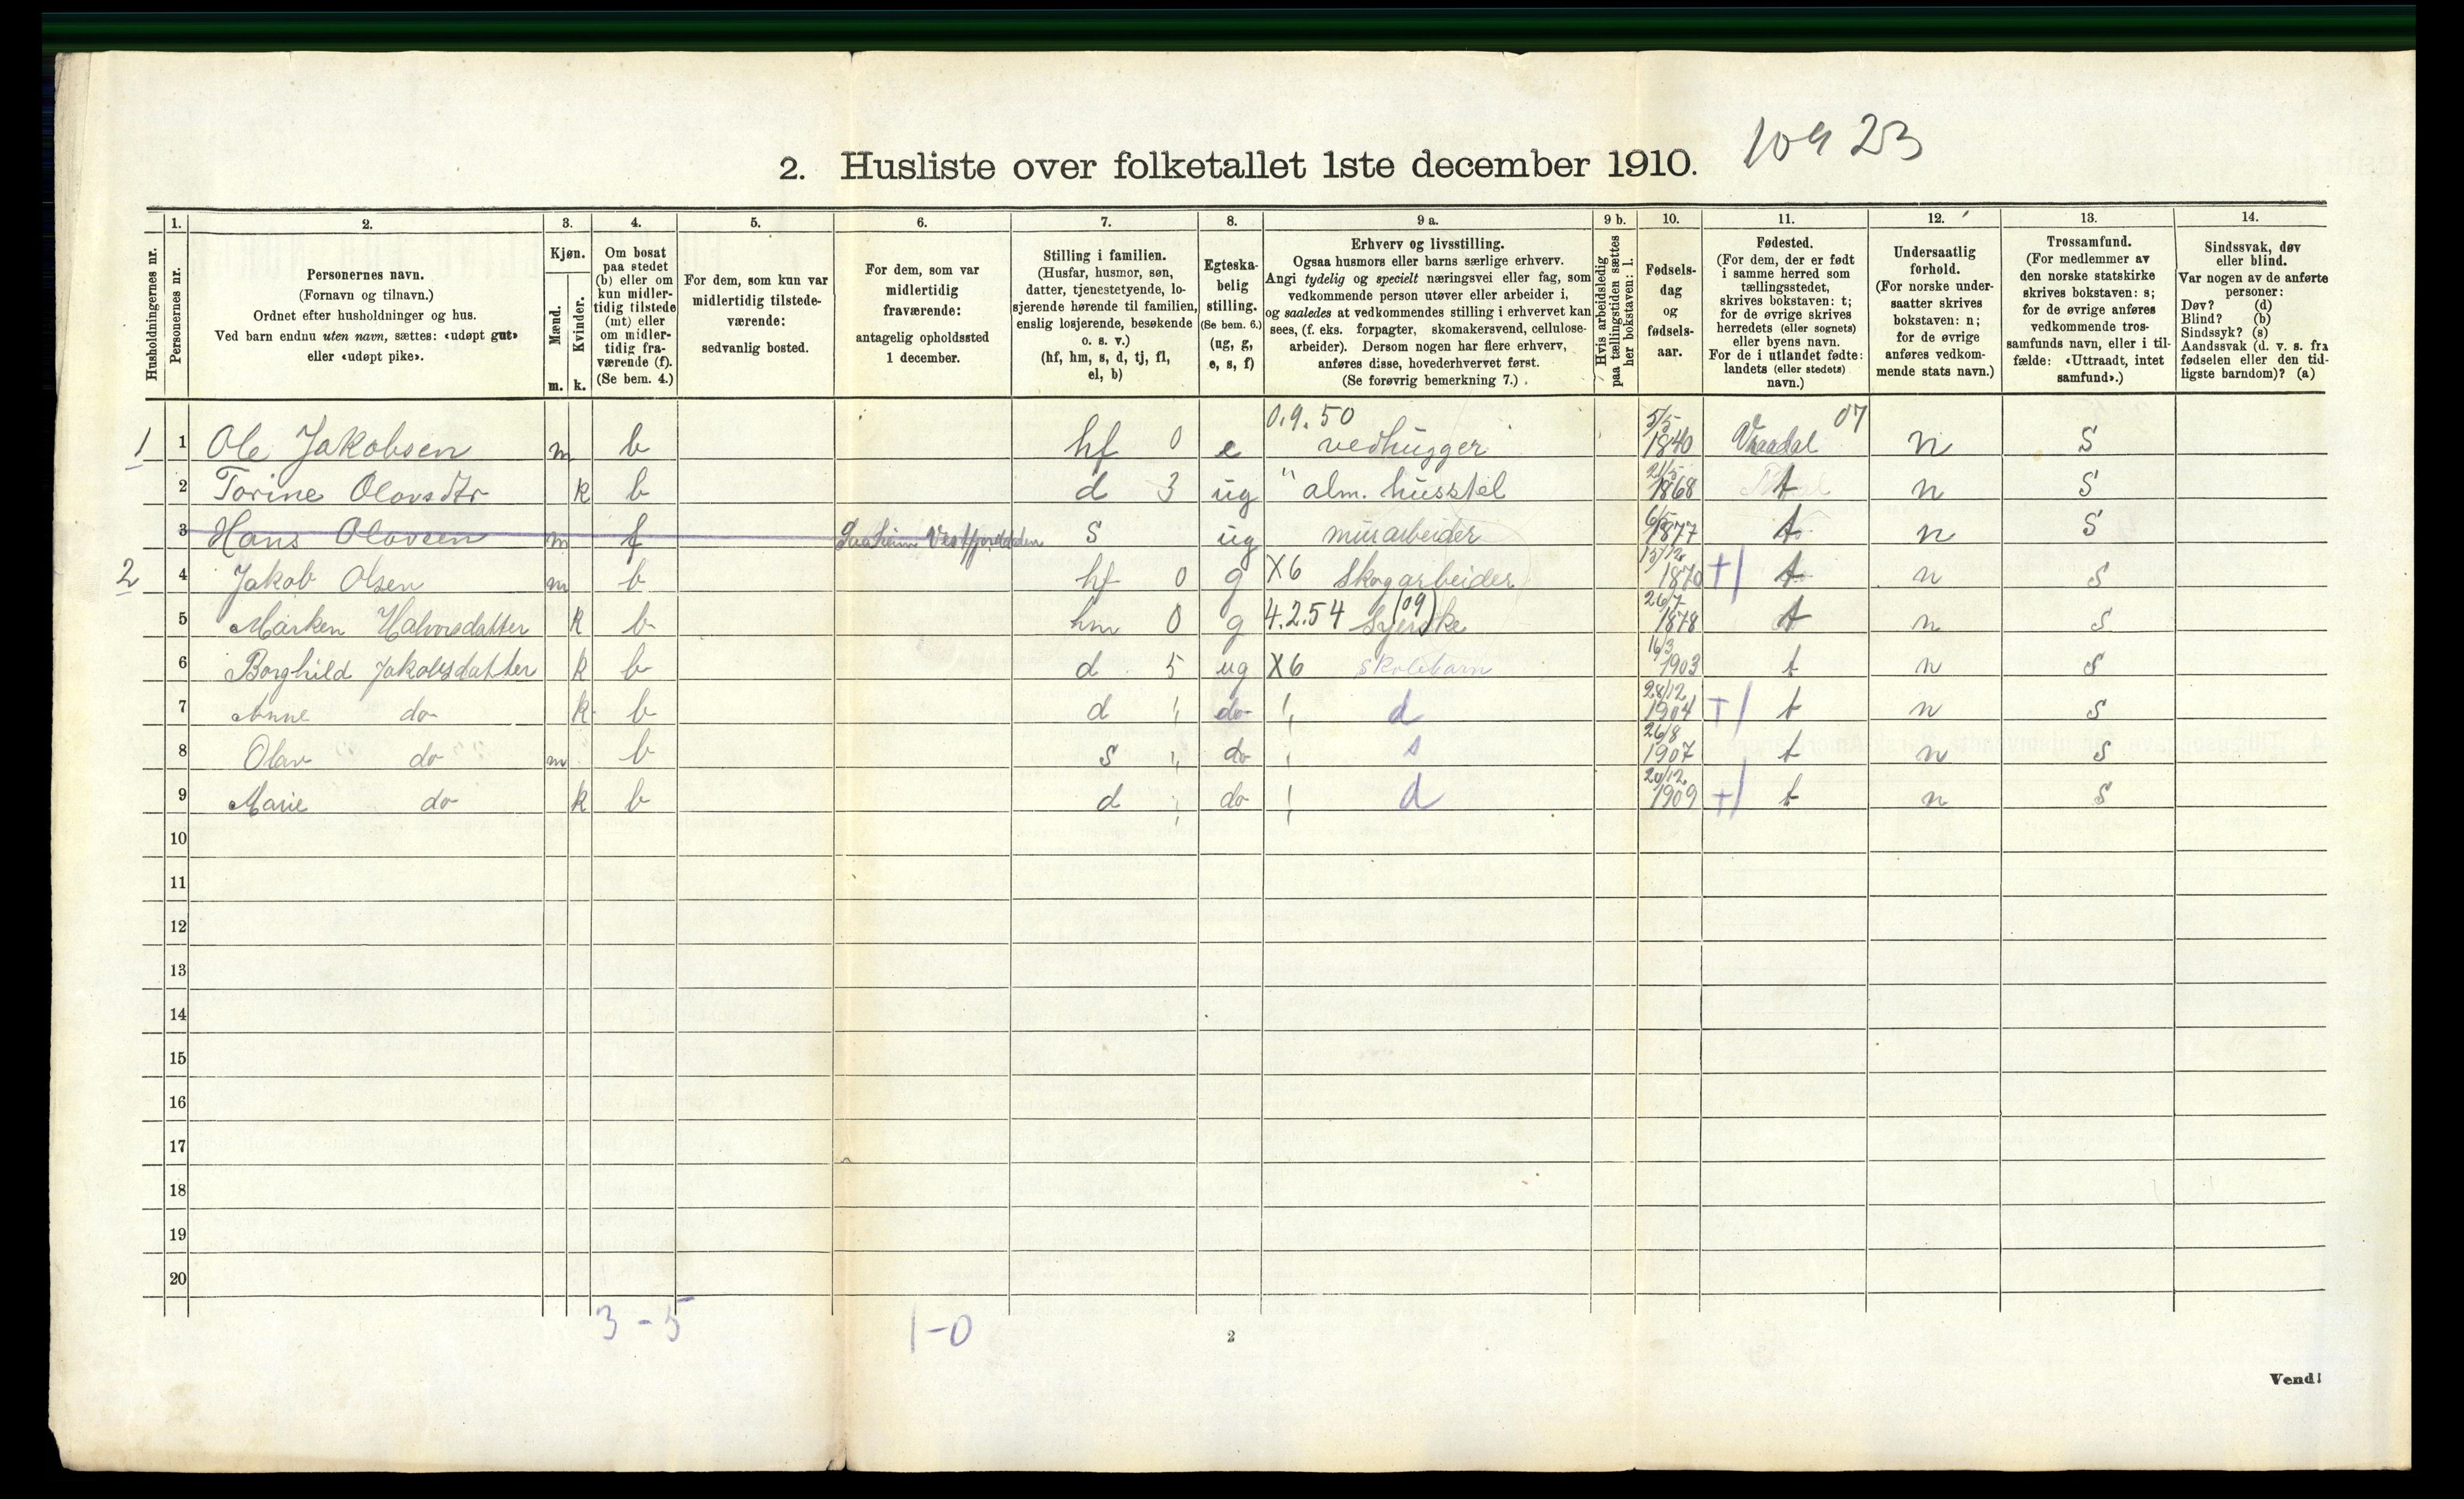 2. Husliste over folketallet 1ste december 1910. 109 23
Husholdningernes nr.
1. Personernes nr.
2. Personernes navn. (Fornavn og tilnavn.) Ordnet efter husholdninger og hus. Ved barn endnu uten navn, sættes: «udøpt gut» eller «udøpt pike».
3. Kjøn. Mænd. m. Kvinder. k.
4. Om bosat paa stedet (b) eller om kun midlertidig tilstede (mt) eller om midlertidig fraværende (f). (Se bem. 4.)
5. For dem, som kun var midlertidig tilstedeværende: sedvanlig bosted.
6. For dem, som var midlertidig fraværende: antagelig opholdssted 1 december.
7. Stilling i familien. (Husfar, husmor, søn, datter, tjenestetyende, losjerende hørende til familien, enslig losjerende, besøkende o. s. v.) (hf, hm, s, d, tj, fl, el, b)
8. Egteskabelig stilling. (Se bem. 6.) (ug, g, e, s, f)
9 a. Erhverv og livsstilling. Ogsaa husmors eller barns særlige erhverv. Angi tydelig og specielt næringsvei eller fag, som vedkommende person utøver eller arbeider i, og saaledes at vedkommendes stilling i erhvervet kan sees, (f. eks. forpagter, skomakersvend, cellulosearbeider). Dersom nogen har flere erhverv, anføres disse, hovederhvervet først. (Se forøvrig bemerkning 7.)
9 b. Hvis arbeidsledig paa tællingstiden sættes her bokstaven: l.
10. Fødselsdag og fødselsaar.
11. Fødested. (For dem, der er født i samme herred som tællingsstedet, skrives bokstaven: t; for de øvrige skrives herredets (eller sognets) eller byens navn. For de i utlandet fødte: landets (eller stedets) navn.)
12. Undersaatlig forhold. (For norske undersaatter skrives bokstaven: n; for de øvrige anføres vedkommende stats navn.)
13. Trossamfund. (For medlemmer av den norske statskirke skrives bokstaven: s; for de øvrige anføres vedkommende trossamfunds navn, eller i tilfælde: «Uttraadt, intet samfund».)
14. Sindssvak, døv eller blind. Var nogen av de anførte personer: Døv? (d) Blind? (b) Sindssyk? (s) Aandssvak (d. v. s. fra fødselen eller den tidligste barndom)? (a)
1 1 Ole Jakobsen m b hf 0 e 0.9.50 vedhugger 5/5 1840 Vraadal 07 n S
2 Torine Olovsdtr k b d 3 ug " alm. husstel 21/5 1868 t n S
3 Hans Olovsen m f Saaheim Vestfjorddalen S ug murarbeider 6/5 1877 t n S
2 4 Jakob Olsen m b hf 0 g X6 Skogarbeider 15/12 1870 t n S
5 Marken Halvorsdatter k b hm 0 g 4.2.54 (09) Syerske 26/7 1878 t n S
6 Borghild Jakobsdatter k b d 5 ug X6 skolebarn 16/3 1903 t n S
7 Anne do k b d " do " d 28/12 1904 t n S
8 Olav do m b s " do " s 26/8 1907 t n S
9 Marie do k b d " do " d 20/12 1909 t n S
10
11
12
13
14
15
16
17
18
19
20
3-5 1-0
2
Vend!